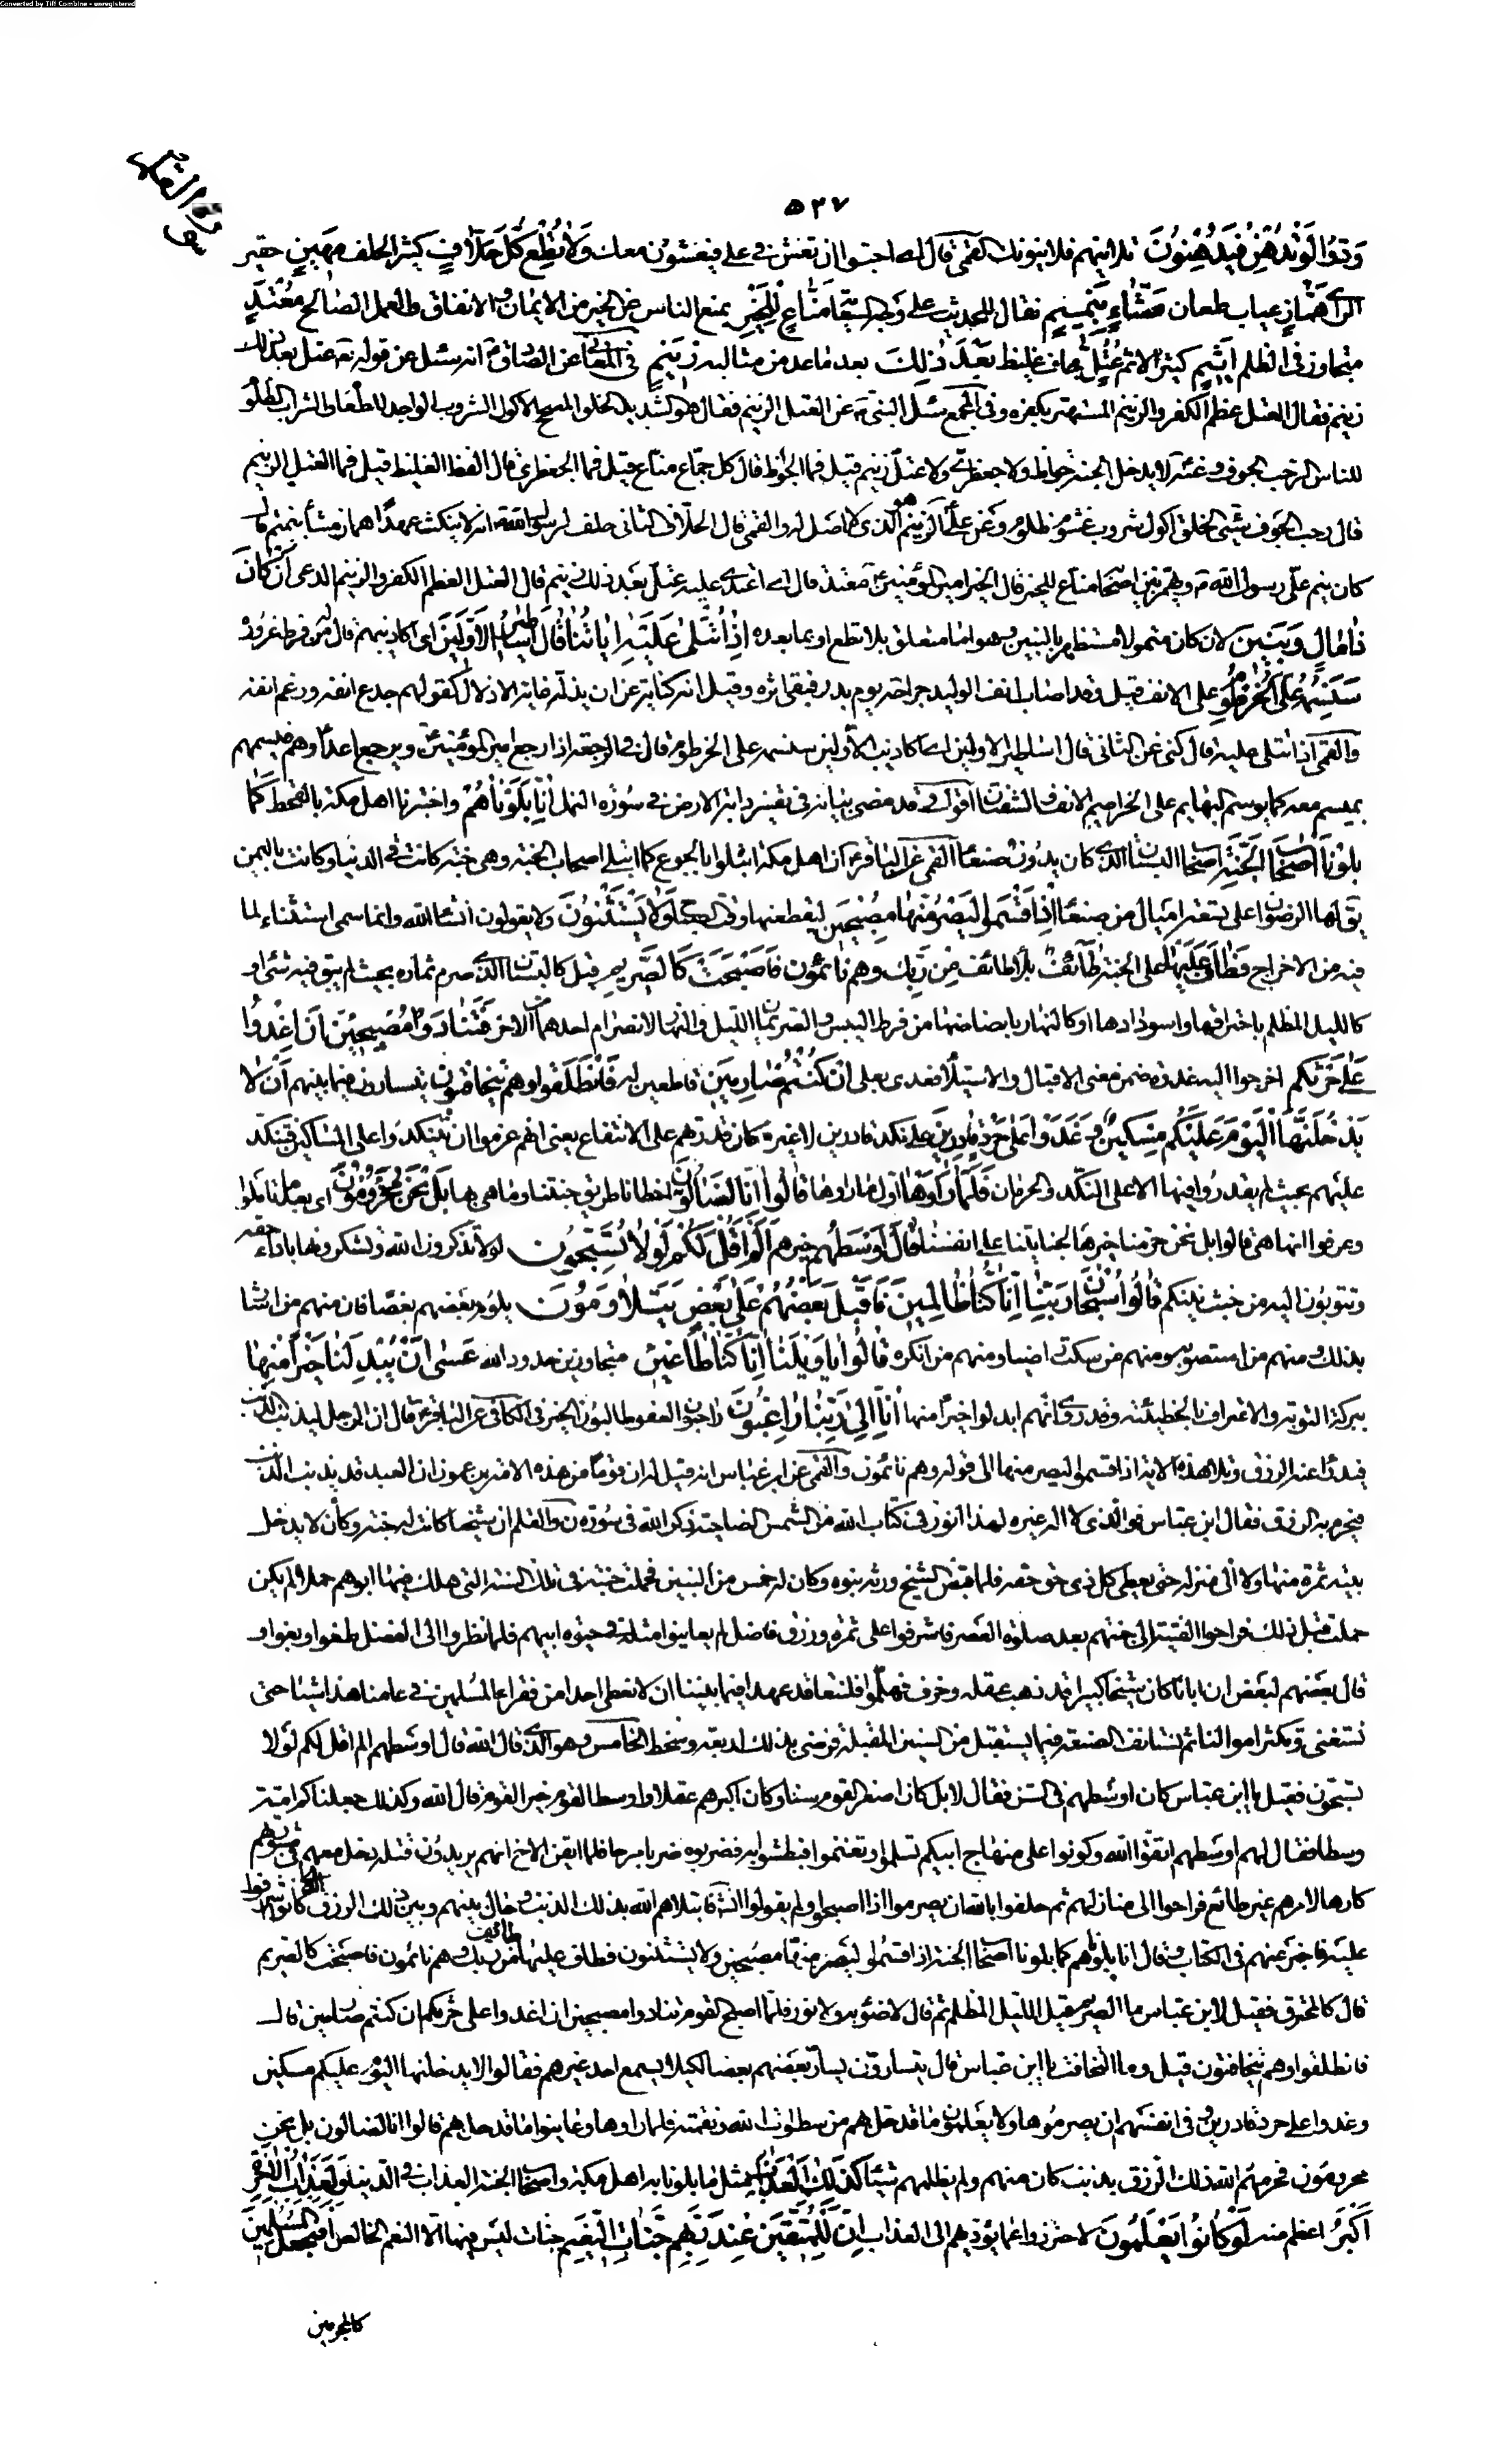 Converted by Tiff Combine - unregistered
سورة القلم
٥٣٧
وَدّوُا لَوْ تُدْهِنُ فَيُدْهِنُونَ تلاينهم فلاينونك القمى قال اى احبوا ان تغش فى على فيغشون معك وَلا تُطِعْ كُلَّ حَلّافٍ كثير الحلف مَهينٍ حقير
الراى هَمّازٍ عياب طعان مَشّاءٍ بِنَميمٍ نقال للحديث على وجه السعاية مَنّاعٍ لِلْخَيْرِ يمنع الناس عن الخير من الايمان والانفاق والعمل الصالح مُعْتَدٍ
متجاوز فى الظلم اَثيمٍ كثير الاثم عُتُلٍّ جاف غليظ بَعْدَ ذلِكَ بعد ما عد من مثالبه زَنيمٍ فى المعانى عن الصادق انه سئل عن قوله تع عتل بعد ذلك
زنيم فقال العتل عظيم الكفر والزنيم المستهتر بكفره وفى المجمع سئل النبى عن العتل الزنيم فقال هو الشديد الخلق المصحح الاكول الشروب الواجد للطعام والشراب الظلوم
للناس الرحب الجوف وعنه لا يدخل الجنة جواظ ولا جعظرى ولا عتل زنيم قيل فما الجواظ قال كل جماع مناع قيل فما الجعظرى قال الفظ الغليظ قيل فما العتل الزنيم
قال رحب الجوف سيئ الخلق اكول شروب غشوم ظلوم وعن على الزنيم هو الذى لا اصل له والقمى قال الحلاف الثانى حلف لرسول الله انه لا ينكث عهدا هماز مشاء بنميم قال
كان ينم على رسول الله ويهمز بين اصحابه مناع للخير قال الخير امير المؤمنين معتد قال اى اعتدى عليه عتل بعد ذلك زنيم قال العتل العظيم الكفر والزنيم الدعى اَنْ كانَ
ذا مالٍ وَبَنينَ لان كان متمولا مستظهرا بالبنين وهو اما متعلق بلا تطع او بما بعده اِذا تُتْلى عَلَيْهِ اياتُنا قالَ اَساطيرُ الْاَوَّلينَ اى اكاذيبهم قاله من فرط غروره
سَنَسِمُهُ عَلَى الْخُرْطُومِ على الانف قيل وقد اصاب انف الوليد جراحة يوم بدر فبقى اثره وقيل انه كناية عن ان يذله غاية الاذلال كقولهم جدع انفه ورغم انفه
والقمى اذا تتلى عليه قال كنى عن الثانى قال اساطير الاولين اى اكاذيب الاولين سنسمه على الخرطوم قال فى الرجعة اذا رجع امير المؤمنين ويرجع اعداؤه فيسمهم
بميسم معه كما يوسم البهايم على الخراطيم الانف والشفتان اقول وقد مضى بيانه فى تفسير دابة الارض فى سورة النمل اِنّا بَلَوْناهُمْ واختبرنا اهل مكة بالقحط كَما
بَلَوْنا اَصْحابَ الْجَنَّةِ اصحاب البستان الذى كان بدون صنعاء القمى عن الباقر ان اهل مكة ابتلوا بالجوع كما ابتلى اصحاب الجنة وهى جنة كانت فى الدنيا وكانت باليمن
يقال لها الرضوان على تسعة اميال من صنعاء اِذْ اَقْسَمُوا لَيَصْرِمُنَّها مُصْبِحينَ ليقطعنها وقت الصباح وَلا يَسْتَثْنُونَ ولا يقولون انشاء الله وانما سمى استثناء لما
فيه من الاخراج فَطافَ عَلَيْها على الجنة طائِفٌ بلاء طائف مِنْ رَبِّكَ وهم نائِمُون فَاَصْبَحَتْ كَالصَّريمِ قيل كالبستان الذى صرم ثماره بحيث لم يبق فيه شئ او
كالليل المظلم باحتراقها واسودادها او كالنهار بابيضاضها من فرط اليبس والصريمان الليل والنهار لانصرام احدهما من الاخر فَتَنادَوْا مُصْبِحينَ اَنِ اغْدُوا
عَلى حَرْثِكُم اخرجوا اليه غدوة ضمن معنى الاقبال والاستيلاء فعدى بعلى اِنْ كُنْتُمْ صارِمينَ قاطعين له فَانْطَلَقُوا وهم يَتَخافَتُونَ يتسارون فيما بينهم اَنْ لا
يَدْخُلَنَّهَا الْيَوْمَ عَلَيْكُمْ مِسْكينٌ وَغَدَوْا عَلى حَرْدٍ قادِرينَ على نكد قادرين لا غيره مكان قدرتهم على الانتفاع يعنى انهم عزموا ان يتنكدوا على المساكين فتنكد
عليهم بحيث لم يقدروا فيها الا على النكد والحرمان فَلَمّا رَاَوْها اول ما راوها قالُوا اِنّا لَضالُّونَ اخطانا طريق جنتنا وما هى بها بَلْ نَحْنُ مَحْرُومُونَ اى بعد ما تاملوا
وعرفوا انها هى قالوا بل نحن حرمنا خيرها لجنايتنا على انفسنا قالَ اَوْسَطُهُمْ خيرهم اَلَمْ اَقُلْ لَكُمْ لَوْلا تُسَبِّحُونَ لولا تذكرون الله وتشكرونه باداء حقه
وتتوبون اليه من خبث نيتكم قالُوا سُبْحانَ رَبِّنا اِنّا كُنّا ظالِمينَ فَاَقْبَلَ بَعْضُهُمْ عَلى بَعْضٍ يَتَلاوَمُونَ يلوم بعضهم بعضا فان منهم من اشار
بذلك ومنهم من استصوبه ومنهم من سكت راضيا ومنهم من انكره قالُوا يا وَيْلَنا اِنّا كُنّا طاغينَ متجاوزين حدود الله عَسى رَبُّنا اَنْ يُبْدِلَنا خَيْراً مِنْها
ببركة التوبة والاعتراف بالخطيئة وقد روى انهم ابدلوا خيرا منها اِنّا اِلى رَبِّنا راغِبُونَ راجون العفو طالبون الخير فى الكافى عن الباقر قال ان الرجل ليذنب الذنب
فيدرء عنه الرزق وتلا هذه الاية اذ اقسموا ليصرمنها الى قوله وهم نائمون والقمى عن ابن عباس انه قيل له ان قوما من هذه الامة يزعمون ان العبد قد يذنب الذنب
فيحرم به الرزق فقال ابن عباس فوالذى لا اله غيره لهذا انور فى كتاب الله من الشمس الضاحية ذكر الله فى سورة ن والقلم ان شيخا كانت له جنة وكان لا يدخل
بيته ثمرة منها ولا الى منزله حتى يعطى كل ذى حق حقه فلما قبض الشيخ ورثه بنوه وكان له خمس من البنين فحملت جنته فى تلك السنة التى هلك فيها ابوهم حملا لم يكن
حملت قبل ذلك فراحوا الفتية الى جنتهم بعد صلوة العصر فاشرفوا على ثمرة ورزق فاضل لم يعاينوا مثله فى حيوة ابيهم فلما نظروا الى الفضل طغوا وبغوا و
قال بعضهم لبعض ان ابانا كان شيخا كبيرا قد ذهب عقله وخرف فهلموا فلنتعاقد عهدا فيما بيننا ان لا نعطى احدا من فقراء المسلمين فى عامنا هذا شيئا حتى
نستغنى وتكثر اموالنا ثم نستانف الصنعة فيما يستقبل من السنين المقبلة فرضى بذلك اربعة وسخط الخامس وهو الذى قال الله قال اوسطهم الم اقل لكم لولا
تسبحون فقيل يا ابن عباس كان اوسطهم فى السن فقال لا بل كان اصغر القوم سنا وكان اكبرهم عقلا واوسط القوم خير القوم قال الله وكذلك جعلناكم امة
وسطا فقال لهم اوسطهم اتقوا الله وكونوا على منهاج ابيكم تسلموا وتغنموا فبطشوا به فضربوه ضربا مبرحا فلما ايقن الاخ انهم يريدون قتله دخل معهم فى مشورتهم
كارها لامرهم غير طائع فراحوا الى منازلهم ثم حلفوا بالله ان يصرموا اذا اصبحوا ولم يقولوا انشاء الله فابتلاهم الله بذلك الذنب وحال بينهم وبين ذلك الرزق الذى كانوا اشرفوا
عليه فاخبر عنهم فى الكتاب وقال انا بلوناهم كما بلونا اصحاب الجنة اذ اقسموا ليصرمنها مصبحين ولا يستثنون فطاف عليها طائف من ربك وهم نائمون فاصبحت كالصريم
قال كالمحترق فقيل لابن عباس ما الصريم قيل الليل المظلم ثم قال لا ضوء به ولا نور فلما اصبح القوم تنادوا مصبحين ان اغدوا على حرثكم ان كنتم صارمين قال
فانطلقوا وهم يتخافتون قيل وما التخافت يا ابن عباس قال يتسارون يسار بعضهم بعضا لكيلا يسمع احد غيرهم فقالوا لا يدخلنها اليوم عليكم مسكين
وغدوا على حرد قادرين وفى انفسهم ان يصرموها ولا يعلمون ما قد حل هم من سطوات الله ونقمته فلما راوها وعاينوا ما قد حل هم قالوا انا لضالون بل نحن
محرومون فحرمهم الله ذلك الرزق بذنب كان منهم ولم يظلمهم شيئا كَذلِكَ الْعَذابُ مثل ما بلونا به اهل مكة واصحاب الجنة العذاب فى الدنيا وَلَعَذابُ الْاخِرَةِ
اَكْبَرُ اعظم منه لَوْ كانُوا يَعْلَمُونَ لاحترزوا عما يؤديهم الى العذاب اِنَّ لِلْمُتَّقينَ عِنْدَ رَبِّهِمْ جَنّاتِ النَّعيمِ جنات ليس فيها الا النعيم الخالص اَفَنَجْعَلُ الْمُسْلِمينَ
كالمجرمين